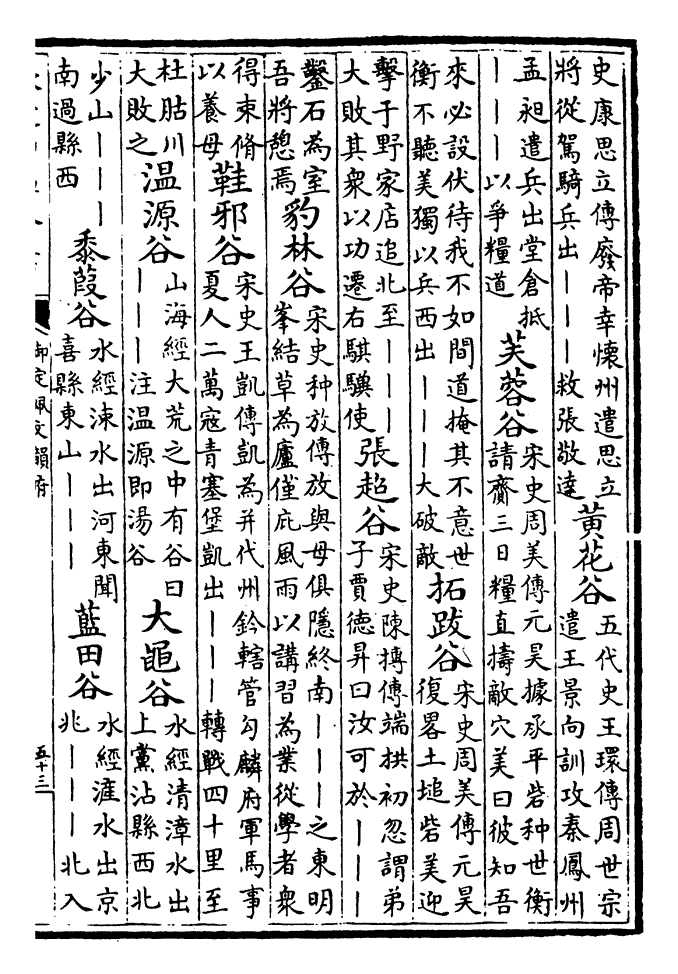 史康思立傳廢帝幸懷州遣思立
將從駕騎兵出｜｜｜救張敬達
黃花谷
五代史王環傳周世宗
遣王景向訓攻秦鳳州
孟昶遣兵出堂倉抵
｜｜｜以爭糧道
芙蓉谷
宋史周美傳元昊據承平砦种世衡
請齎三日糧直擣敵穴美曰彼知吾
來必設伏待我不如間道掩其不意世
衡不聽美獨以兵西出｜｜｜大破敵
拓跋谷
宋史周美傳元昊
復畧土塠砦美迎
擊于野家店追北至｜｜｜
大敗其衆以功遷右騏驥使
張超谷
宋史陳摶傳端拱初忽謂弟
子賈德昇曰汝可於｜｜｜
鑿石為室
吾將憩焉
豹林谷
宋史种放傳放與母俱隱終南｜｜｜之東明
峯結草為廬僅庇風雨以講習為業從學者衆
得束脩
以養母
鞋邪谷
宋史王凱傳凱為并代州鈐轄管勾麟府軍馬事
夏人二萬寇青塞堡凱出｜｜｜轉戰四十里至
杜胋川
大敗之
温源谷
山海經大荒之中有谷曰
｜｜｜注温源即湯谷
大黽谷
水經清漳水出
上黨沾縣西北
少山｜｜｜
南過縣西
黍葭谷
水經涑水出河東聞
喜縣東山｜｜｜
藍田谷
水經滻水出京
兆｜｜｜北入
御定佩文韻府
五十三